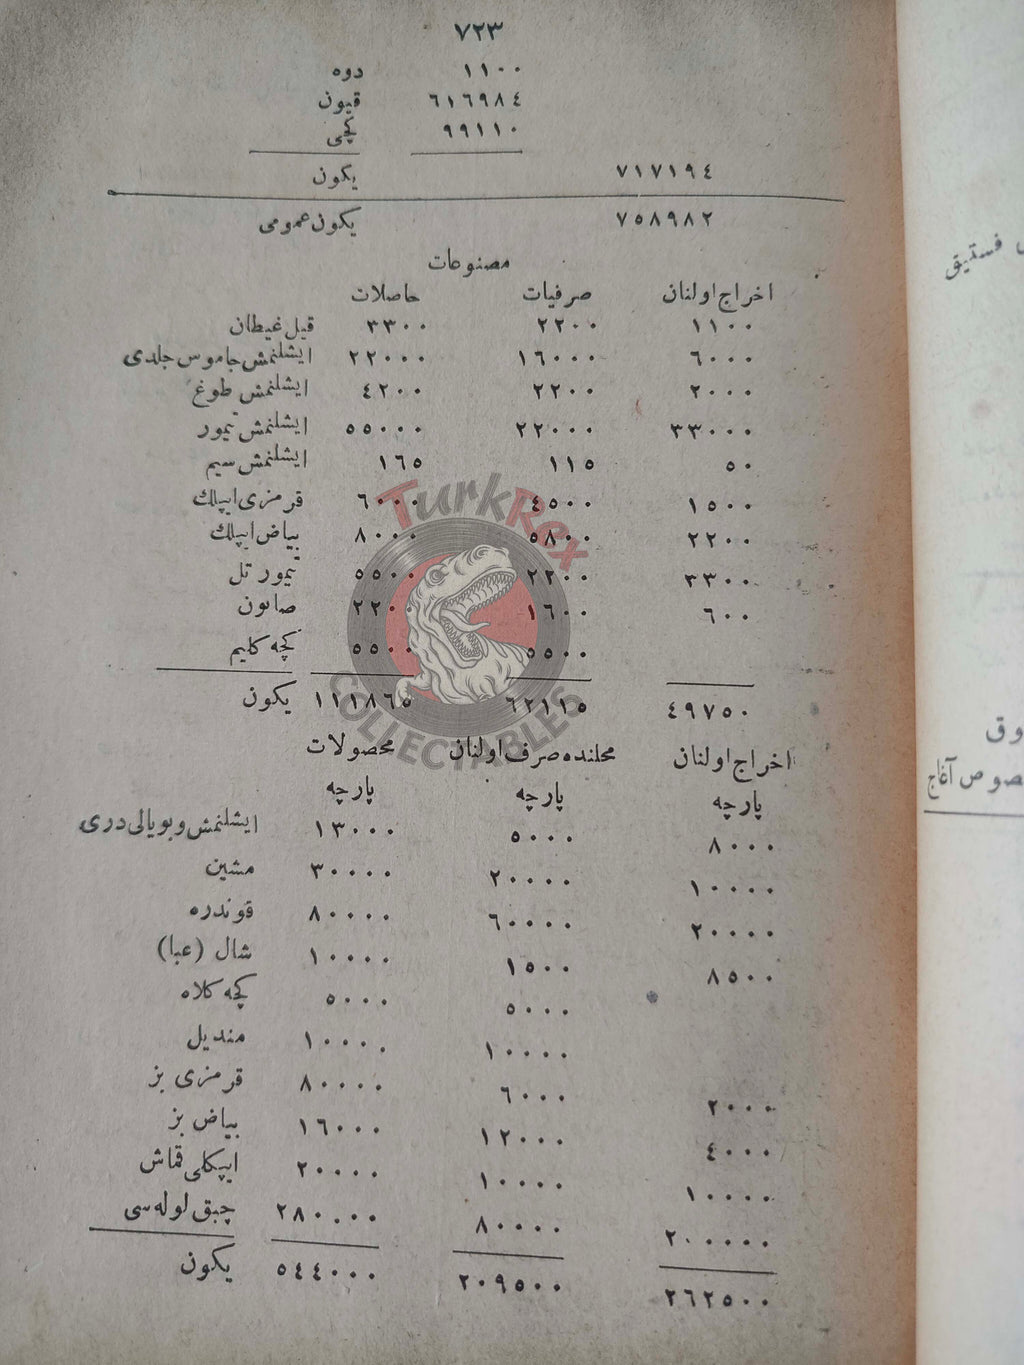 ٧٢٣
دوه ١١٠٠
قيون ٦١٦٩٨٤
كچى ٩٩١١٠
يكون ٧١٧١٩٤
يكون عمومى ٧٥٨٩٨٢
مصنوعات
حاصلات صرفيات اخراج اولنان
قيل غيطان ٣٣٠٠ ٢٢٠٠ ١١٠٠
ايشلنمش جاموس جلدى ٢٢٠٠٠ ١٦٠٠٠ ٦٠٠٠
ايشلنمش طوغ ٤٢٠٠ ٢٢٠٠ ٢٠٠٠
ايشلنمش تيمور ٥٥٠٠٠ ٢٢٠٠٠ ٣٣٠٠٠
ايشلنمش سيم ١٦٥ ١١٥ ٥٠
قرمزى ايپلك ٦٠٠٠ ٤٥٠٠ ١٥٠٠
بياض ايپلك ٨٠٠٠ ٥٨٠٠ ٢٢٠٠
تيمور تل ٥٥٠٠ ٢٢٠٠ ٣٣٠٠
صابون ٢٢٠٠ ١٦٠٠ ٦٠٠
كچه كليم ٥٥٠٠ ٥٥٠٠
يكون ١١١٨٦٥ ٦٢١١٥ ٤٩٧٥٠
محصولات محلنده صرف اولنان اخراج اولنان
پارچه پارچه پارچه
ايشلنمش و بويالى درى ١٣٠٠٠ ٥٠٠٠ ٨٠٠٠
مشين ٣٠٠٠٠ ٢٠٠٠٠ ١٠٠٠٠
قوندره ٨٠٠٠٠ ٦٠٠٠٠ ٢٠٠٠٠
شال (عبا) ١٠٠٠٠ ١٥٠٠ ٨٥٠٠
كچه كلاه ٥٠٠٠ ٥٠٠٠
منديل ١٠٠٠٠ ١٠٠٠٠
قرمزى بز ٨٠٠٠٠ ٦٠٠٠ ٢٠٠٠
بياض بز ١٦٠٠٠ ١٢٠٠٠ ٤٠٠٠
ايپكلى قماش ٢٠٠٠٠ ١٠٠٠٠ ١٠٠٠٠
چبق لوله سى ٢٨٠٠٠٠ ٨٠٠٠٠ ٢٠٠٠٠٠
يكون ٥٤٤٠٠٠ ٢٠٩٥٠٠ ٢٦٢٥٠٠
فستيق
آغاج
TurkRex
COLLECTABLES